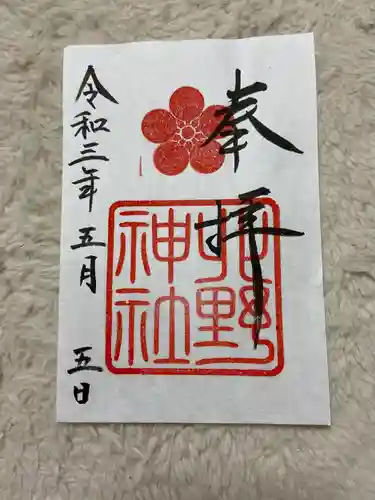 奉拝
野
神社
令和三年五月五日